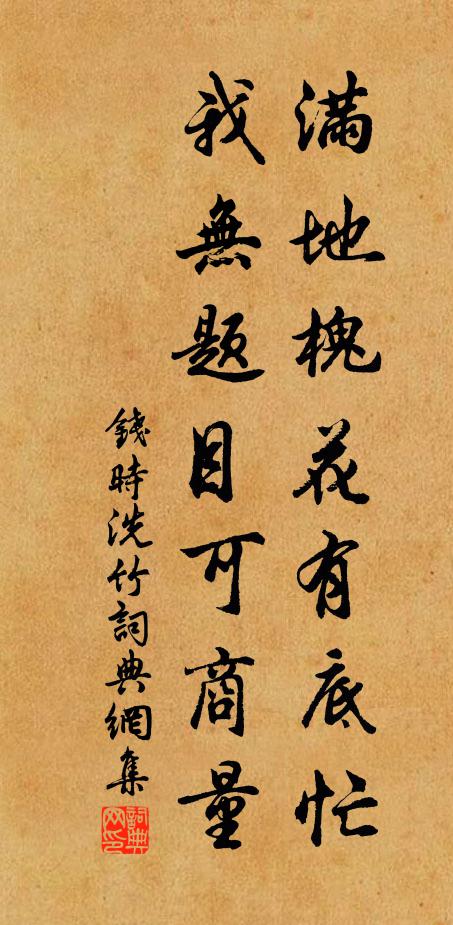 滿地槐花有底忙
我無題目可商量
錢時洗竹詞典網集
詞典网印